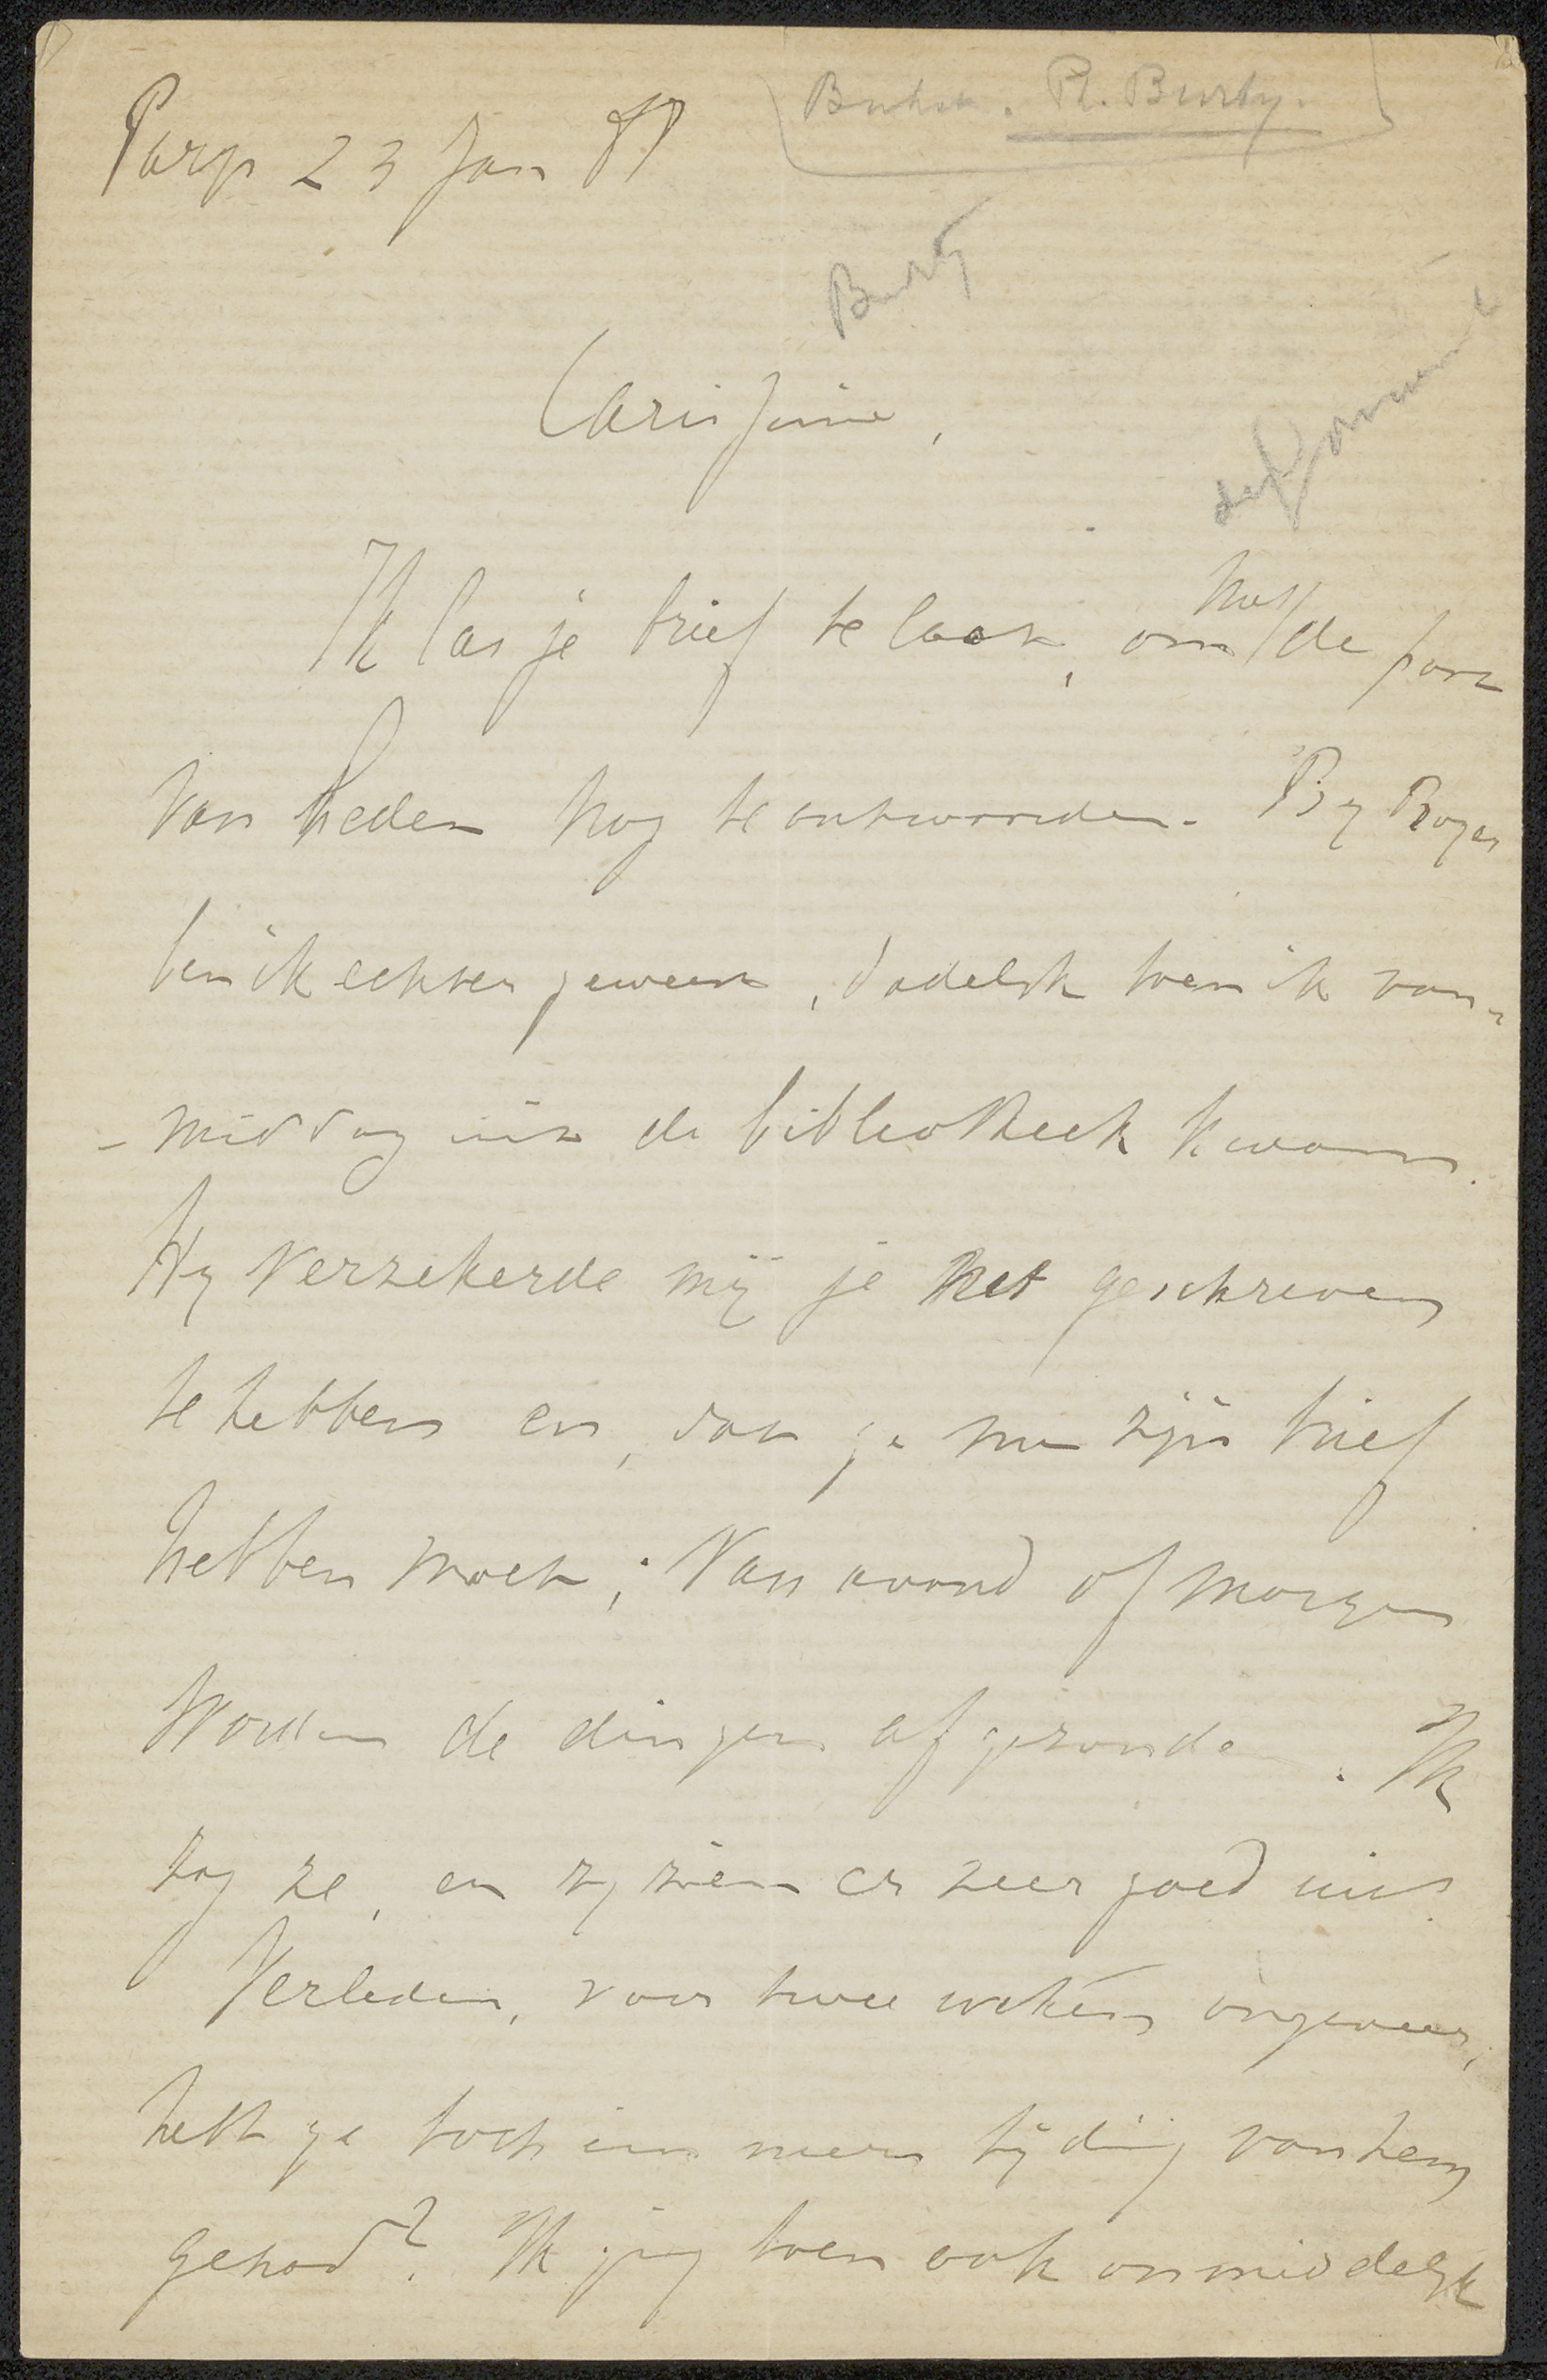 Parys 23 Jan 87
Ph. Burty.
Burty
Carissime,
Ik las je brief te laat, om met de post
van heden nog te antwoorden. By Roger
ben ik echter geweest, dadelik toen ik van-
-middag uit de bibliotheek kwam.
Hy verzekerde mij je het geschreven
te hebben en, dat je nu zijn brief
hebben moet; van avond of morgen
worden de dingen afgezonden. Ik
zag ze, en zy zien er zeer goed uit.
Verleden, voor twee weken ongeveer,
hebt ge toch immers tijding van hem
gehad? Ik ging toen ook onmiddelyk